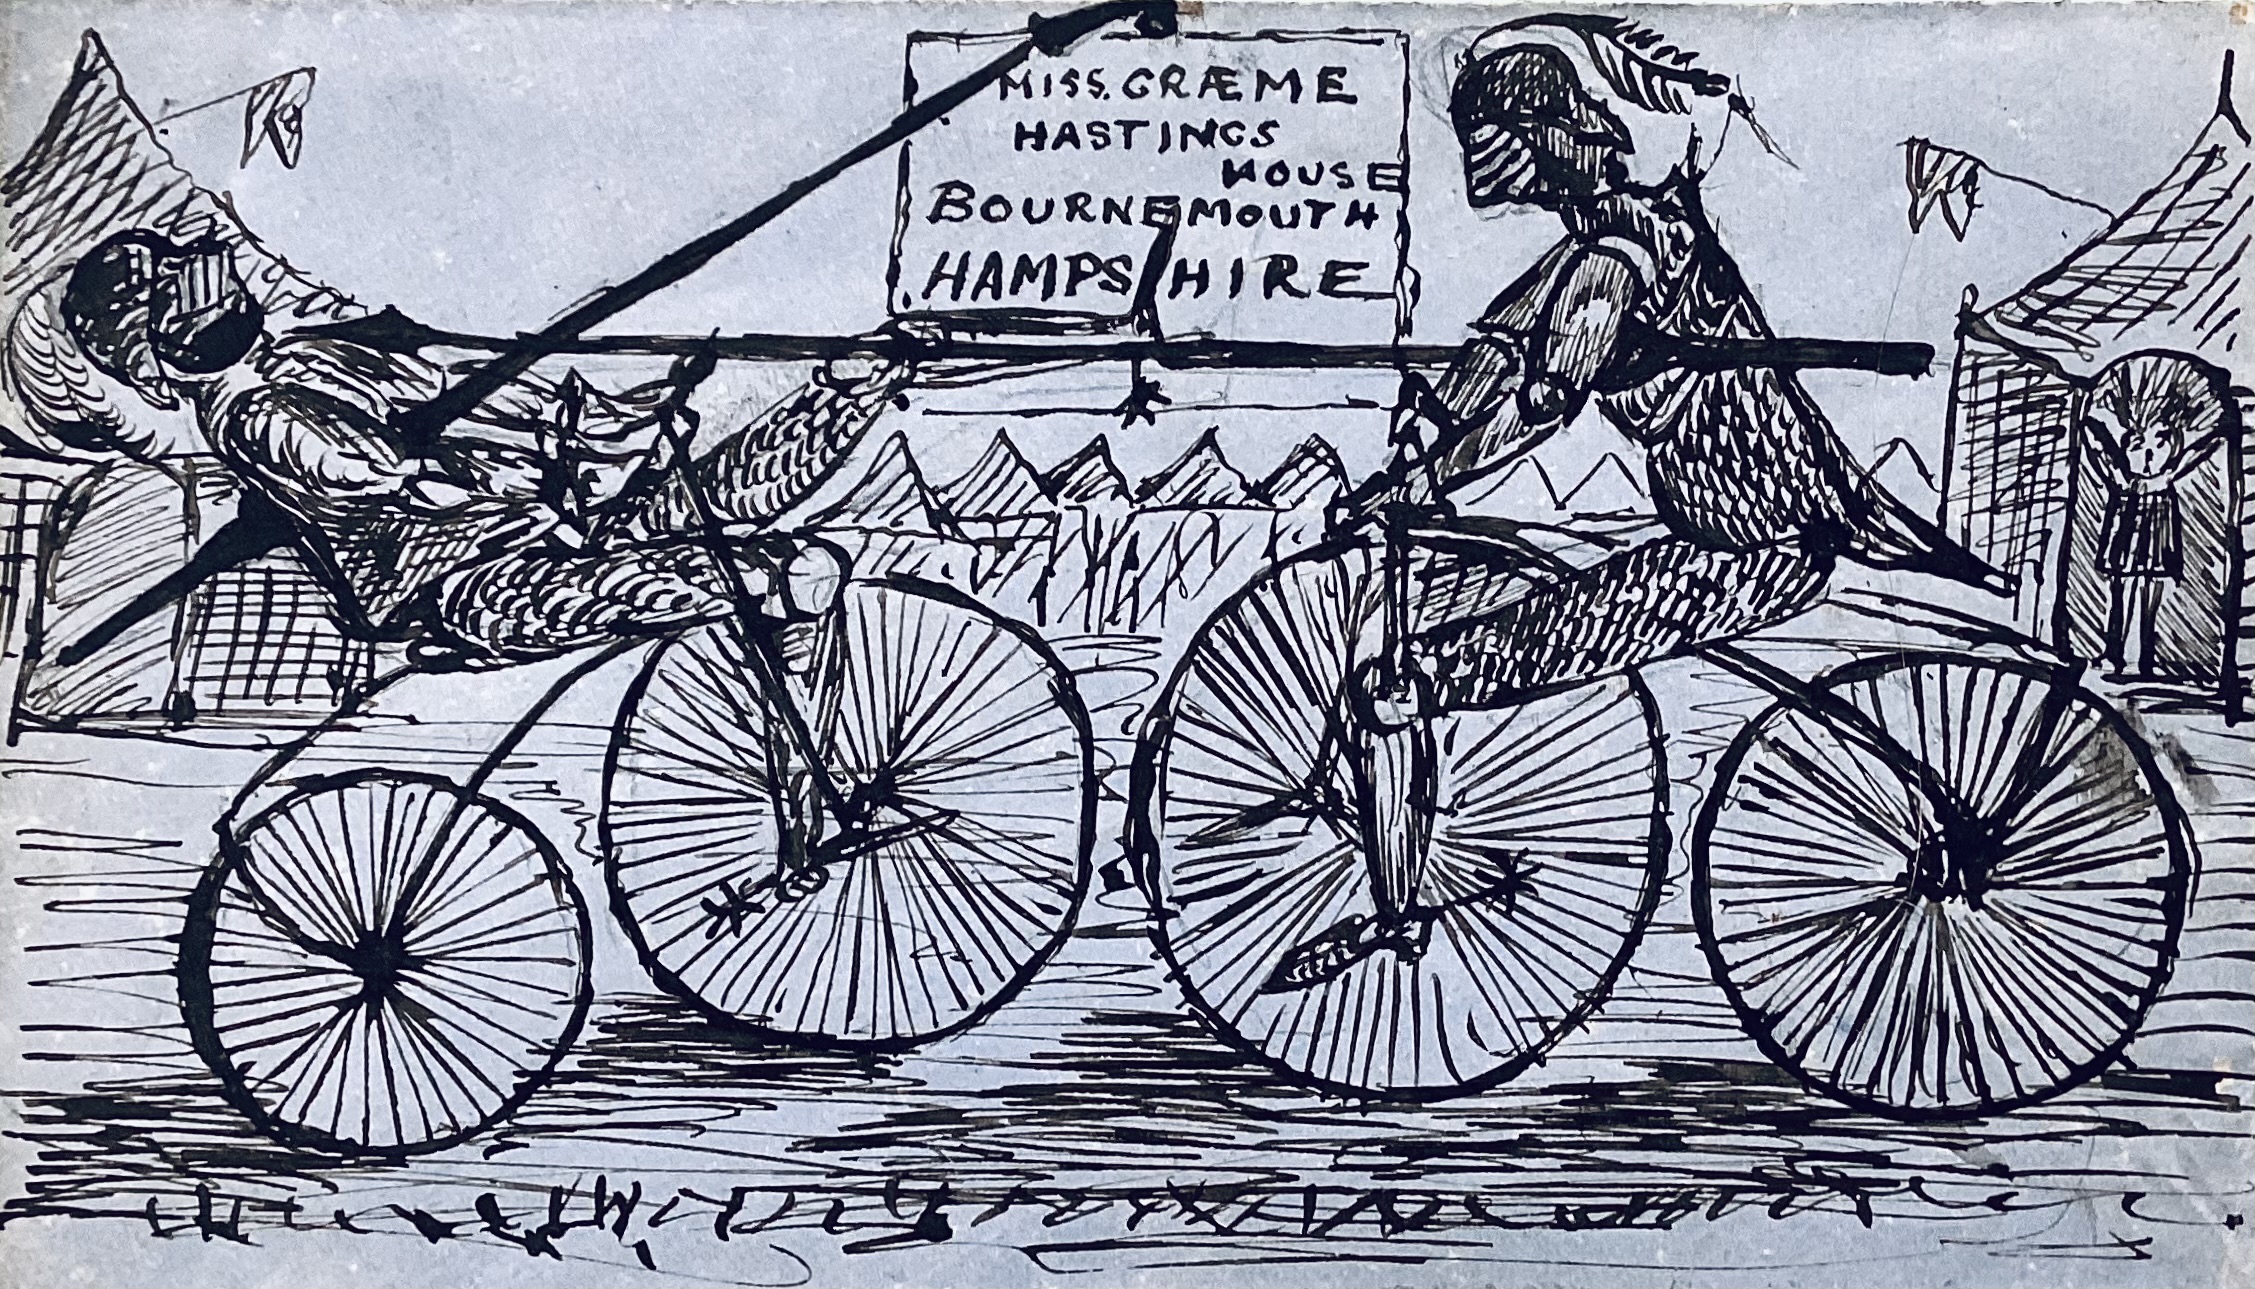 MISS. GRÆME
HASTINGS
HOUSE
BOURNEMOUTH
HAMPSHIRE